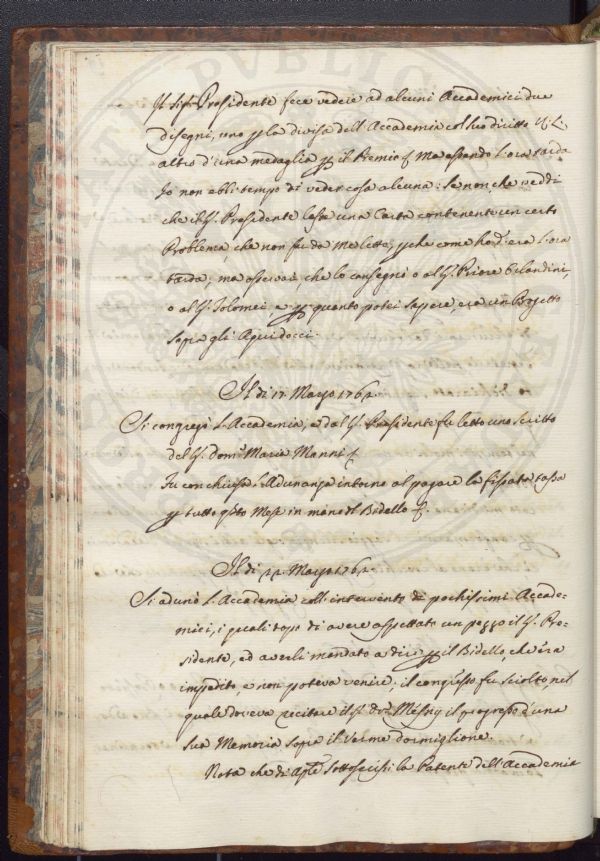 Il Sig.r Presidente fece vedere ad alcuni Accademici due
disegni, uno p la divisa dell'Accademia col suo diritto &c. L'
altro d'una medaglia p il Premio &c. Ma essendo l'ora tarda
Io non ebbi tempo di veder cosa alcuna: Se non, che veddi
che il S. Presidente una Carta contenente un certo
Problema, che non fu da me letto, p che come ho d. era l'ora
tarda; ma osservai, che lo consegnò o al S. Priore Orlandini,
o al S. Tolomei, e p quanto potei sapere, era un Progetto
sopra gli Aquidocci.
Il dì 17 Marzo 176
Si congregò l'Accademia, e dal S. Presidente fu letto uno scritto
del S. Dom.o Maria Manni &c.
Fu conchiusa l'Adunanza intorno al pagare la fissata tassa
p tutto q.sto Mese in mano d'l Bidello &c.
Il dì Marzo 176
Si adunò l'Accademia coll'intervento di pochissimi Accade-
mici, i quali dopo di avere aspettato un pezzo il S. Pre-
sidente, ed averli mandato a dire p il Bidello, che era
impedito e non poteva venire; il congresso fu sciolto, nel
quale doveva recitare il S. Mesny il progresso d'una
sua Memoria sopra il Verme dormiglione.
Nota che di Ap.le sottoscrissi la Patente dell'Accademia